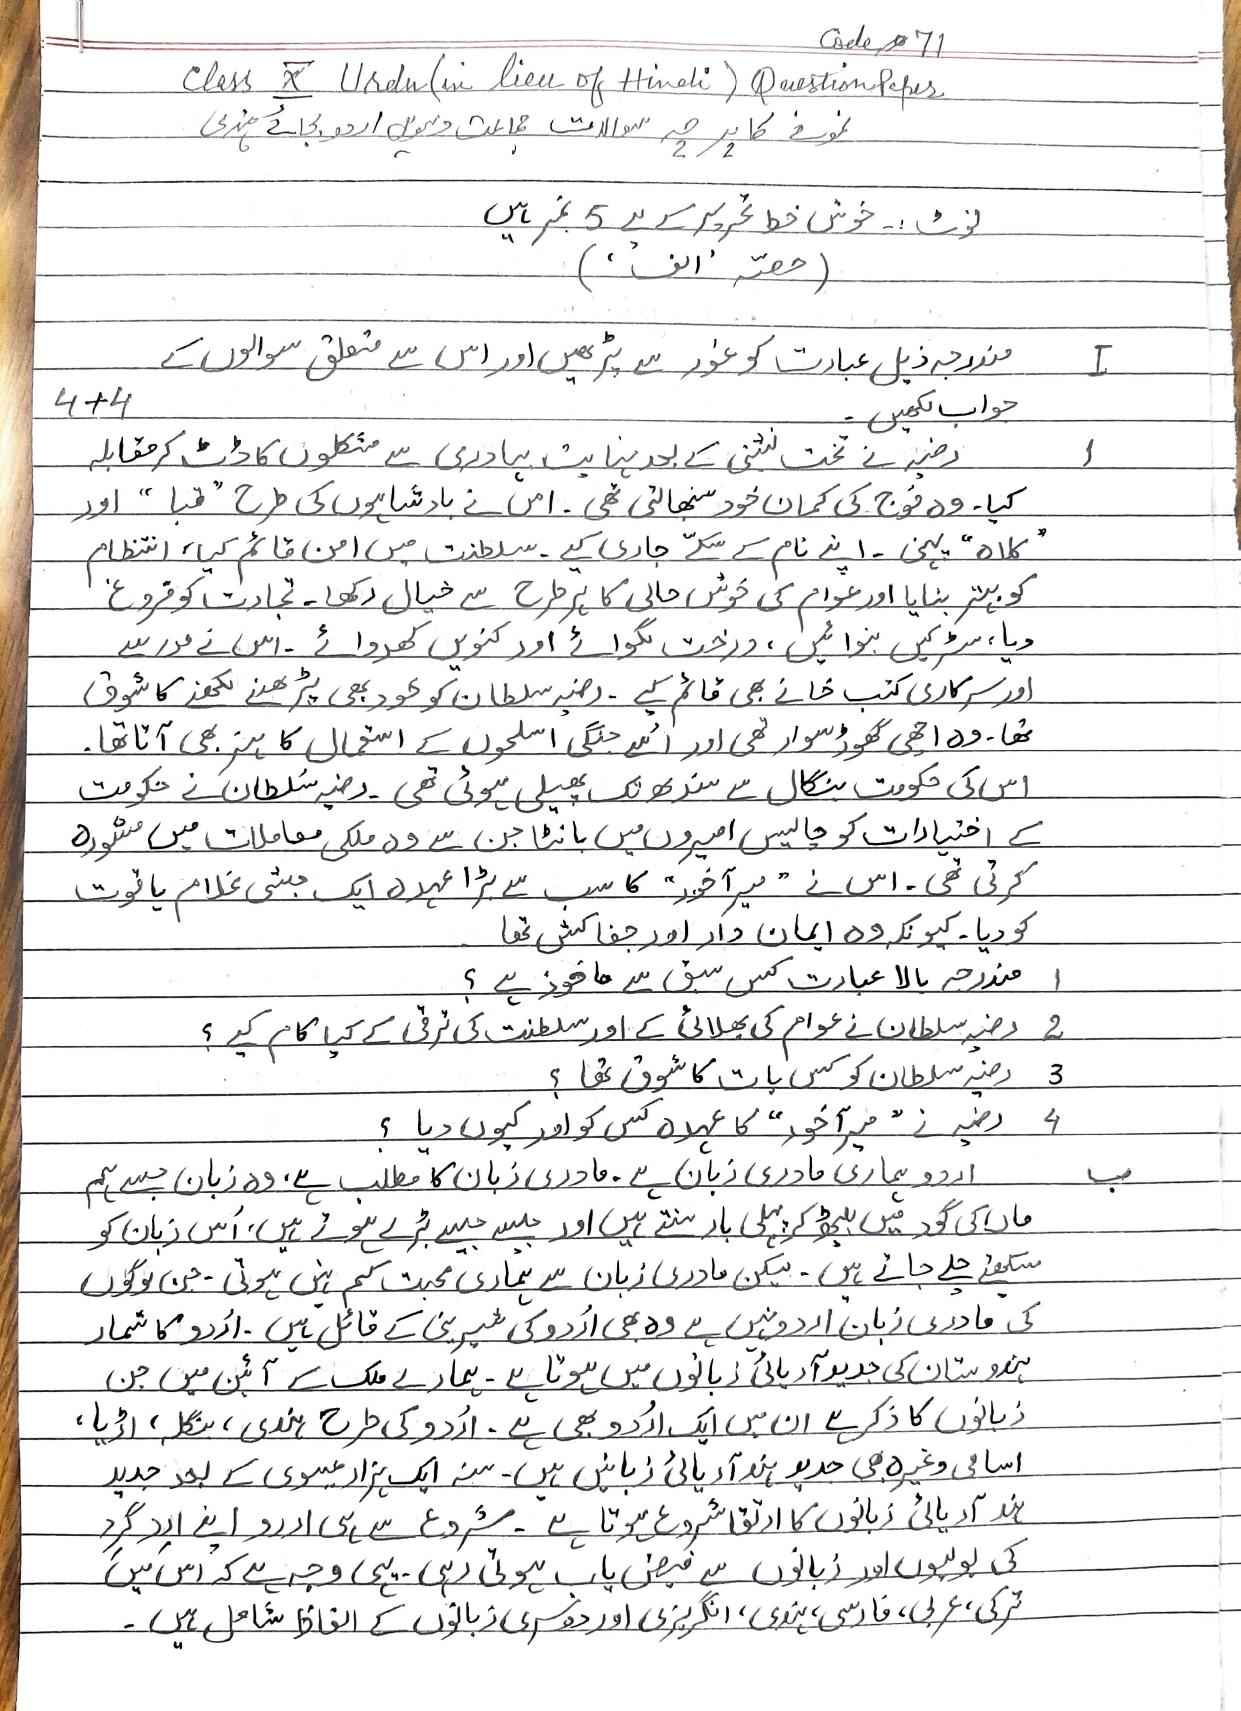 Code 71
Class X Urdu (in lieu of Hindi) Question Paper
نمونے کا پرچہ سوالات جماعت دسویں اردو بجائے ہندی
نوٹ :۔ خوش خط تحریر کے لیے 5 نمبر ہیں
(حصّہ 'الف')
I مندرجہ ذیل عبارت کو غور سے پڑھیں اور اس سے متعلق سوالوں کے
جواب لکھیں ۔ 4+4
ا رضیہ نے تخت نشینی کے بعد نہایت بہادری سے مشکلوں کا ڈٹ کر مقابلہ
کیا۔ وہ فوج کی کمان خود سنبھالتی تھی ۔ اس نے بادشاہوں کی طرح "قبا" اور
"کلاہ" پہنی ۔ اپنے نام کے سکّے جاری کیے ۔ سلطنت میں امن قائم کیا، انتظام
کو بہتر بنایا اور عوام کی خوش حالی کا ہر طرح سے خیال رکھا۔ تجارت کو فروغ
دیا، سڑکیں بنوائیں، درخت لگوائے اور کنویں کھدوائے ۔ اس نے مدرسے
اور سرکاری کتب خانے بھی قائم کیے ۔ رضیہ سلطان کو خود بھی پڑھنے لکھنے کا شوق
تھا۔ وہ اچھی گھوڑسوار تھی اور اُسے جنگی اسلحوں کے استعمال کا ہنر بھی آتا تھا۔
اس کی حکومت بنگال سے سندھ تک پھیلی ہوئی تھی ۔ رضیہ سُلطان نے حکومت
کے اختیارات کو چالیس امیروں میں بانٹا جن سے وہ ملکی معاملات میں مشورہ
کرتی تھی ۔ اس نے "میر آخور" کا سب سے بڑا عہدہ ایک حبشی غلام یاقوت
کو دیا۔ کیونکہ وہ ایمان دار اور جفاکش تھا
1 مندرجہ بالا عبارت کس سبق سے ماخوذ ہے ؟
2 رضیہ سلطان نے عوام کی بھلائی کے اور سلطنت کی ترقی کے کیا کام کیے ؟
3 رضیہ سلطان کو کس بات کا شوق تھا ؟
4 رضیہ نے "میر آخور" کا عہدہ کس کو اور کیوں دیا ؟
ب اردو ہماری مادری زبان ہے ۔ مادری زبان کا مطلب ہے، وہ زبان جسے ہم
ماں کی گود میں پہلی بار سنتے ہیں اور جیسے جیسے بڑے ہوتے ہیں، اُس زبان کو
سیکھتے چلے جاتے ہیں ۔ لیکن مادری زبان سے ہماری محبت کم نہیں ہوتی ۔ جن لوگوں
کی مادری زبان اردو نہیں ہے وہ بھی اُردو کی شیرینی کے قائل ہیں ۔ اُردو کا شمار
ہندوستان کی جدید آریائی زبانوں میں ہوتا ہے ۔ ہمارے ملک کے آئین میں جن
زبانوں کا ذکر ہے ان میں ایک اُردو بھی ہے ۔ اُردو کی طرح ہندی، بنگلہ، اڑیا،
اسامی وغیرہ بھی جدید ہند آریائی زبانیں ہیں۔ سنہ ایک ہزار عیسوی کے بعد جدید
ہند آریائی زبانوں کا ارتقا شروع ہوتا ہے ۔ شروع سے ہی اردو اپنے ارد گرد
کی بولیوں اور زبانوں سے فیض یاب ہوتی رہی ۔ یہی وجہ ہے کہ اس میں
ترکی، عربی، فارسی، ہندی، انگریزی اور دوسری زبانوں کے الفاظ شامل ہیں ۔